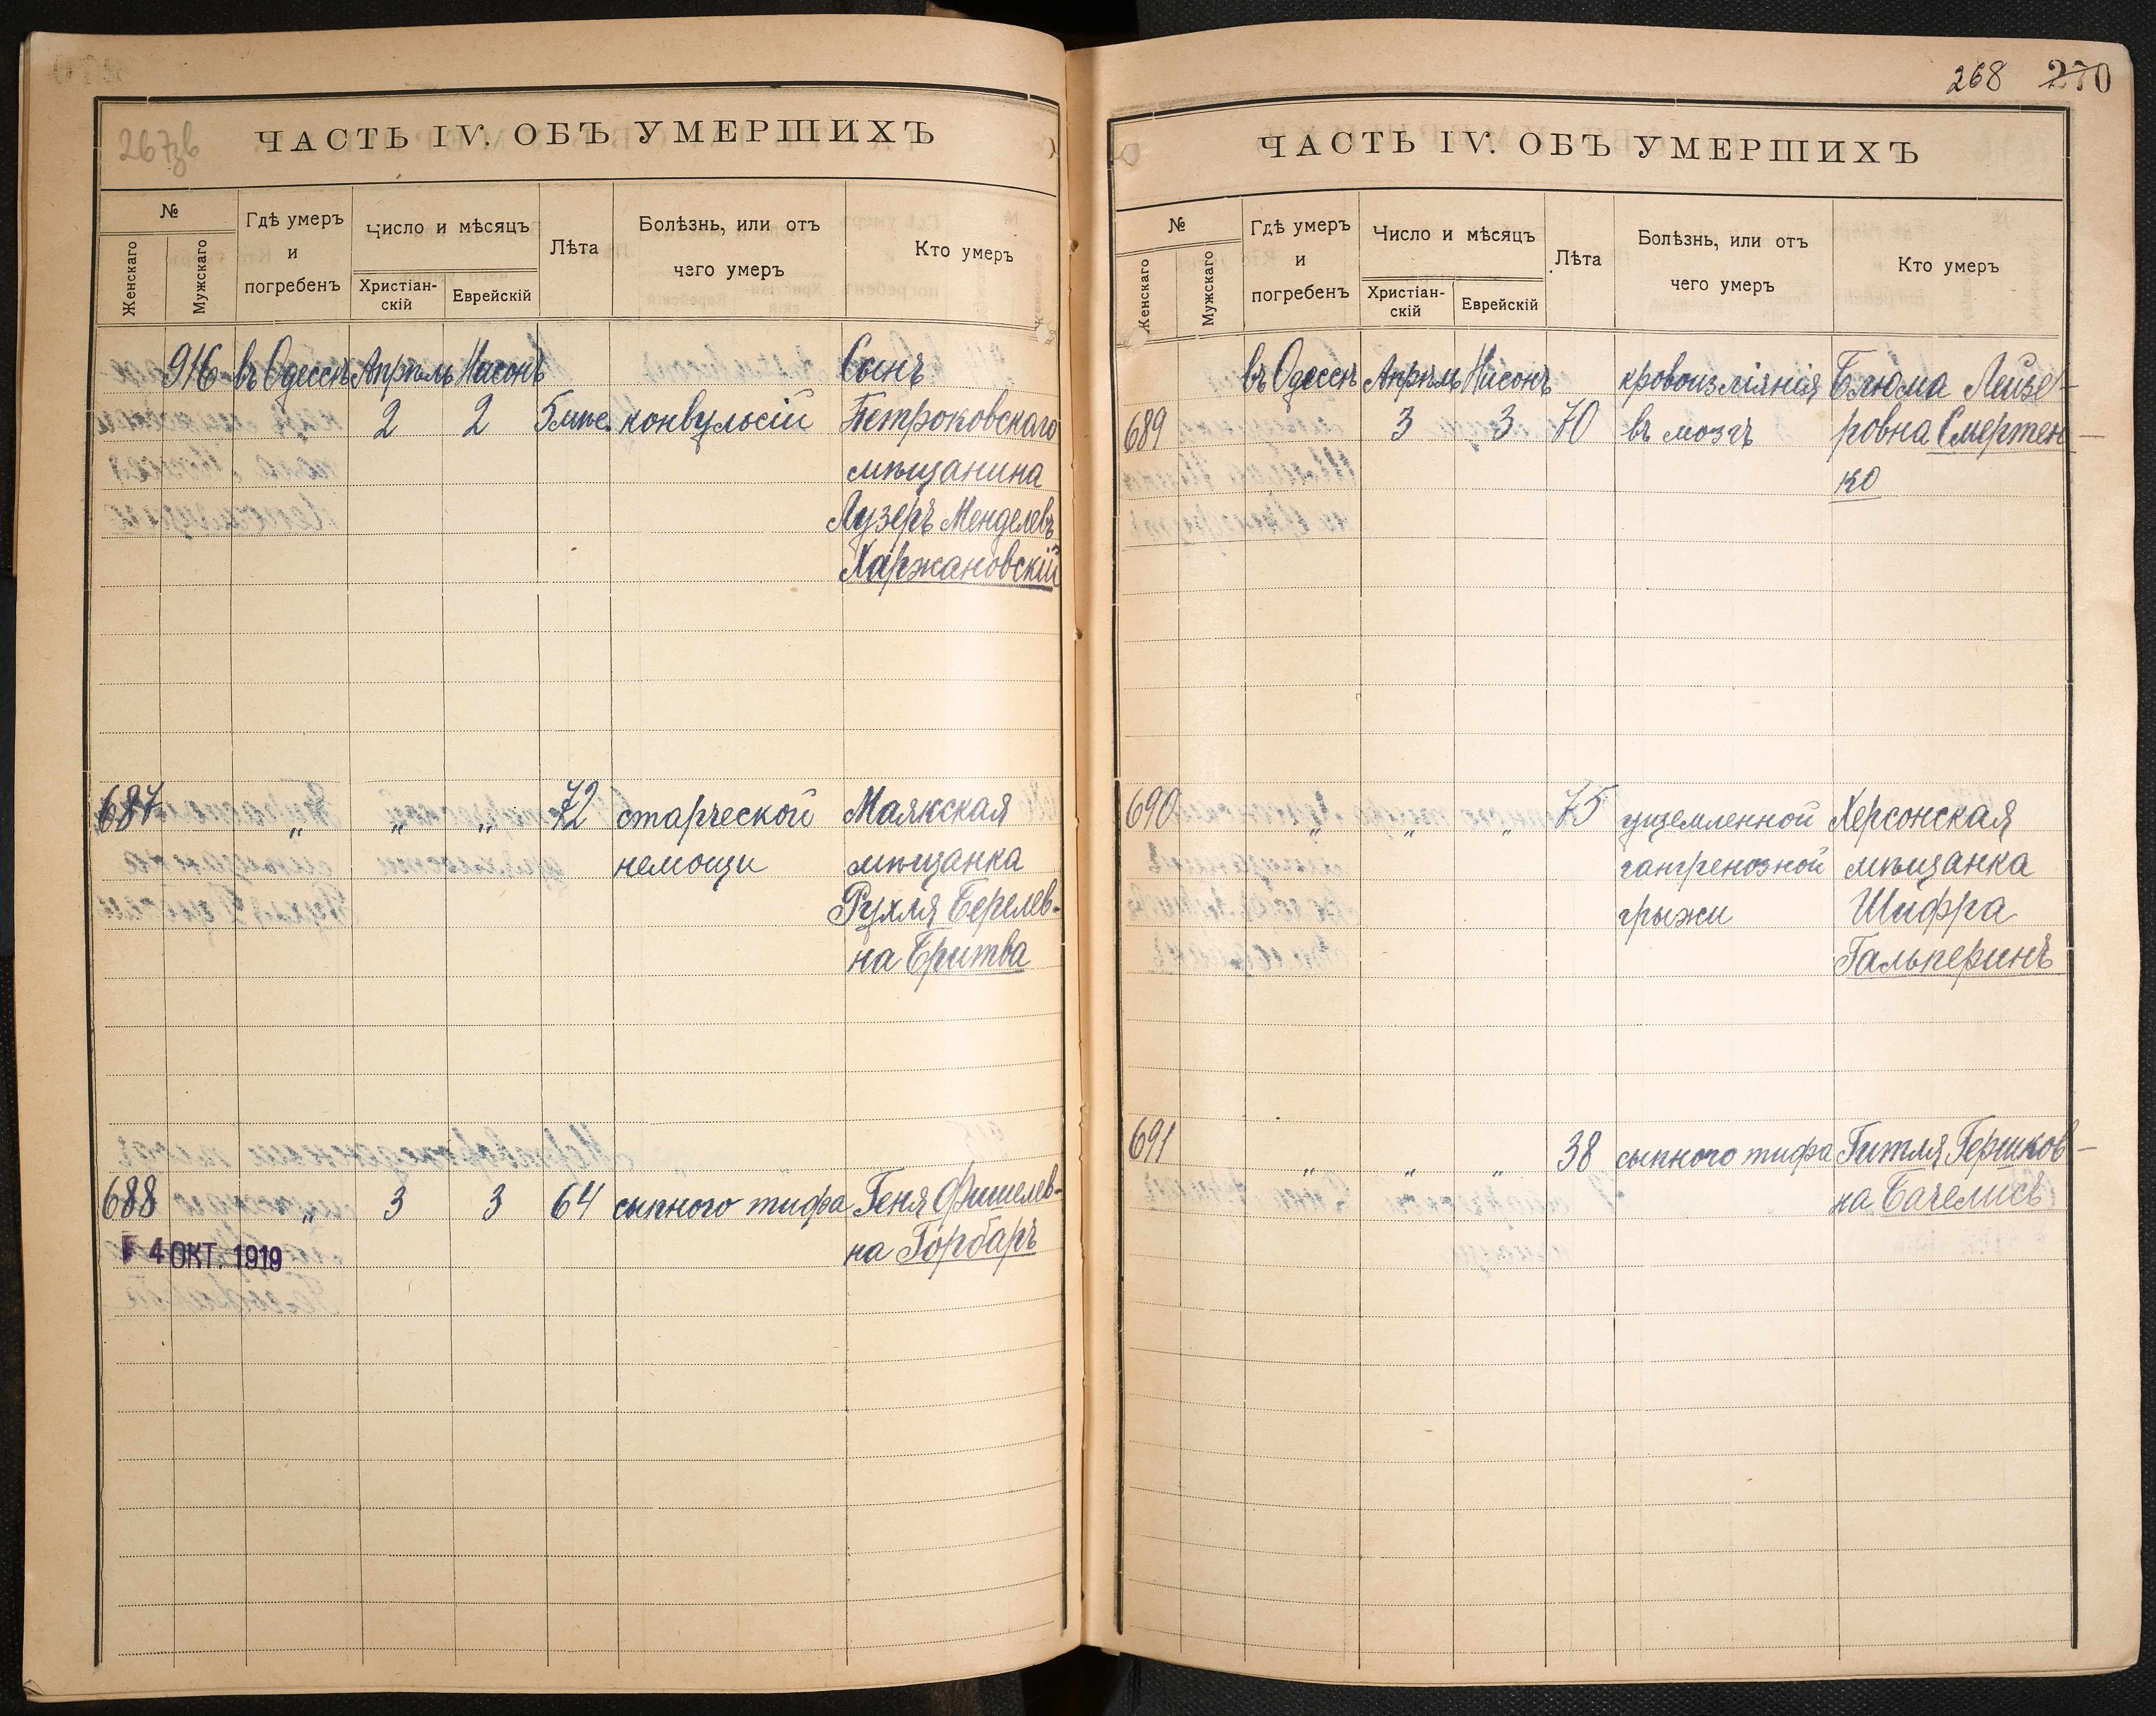 267зв
ЧАСТЬ IV. ОБЪ УМЕРШИХЪ
№
Женскаго
Мужскаго
Гдѣ умеръ
и
погребенъ
Число и мѣсяцъ
Христіан-
скій
Еврейскій
Лѣта
Болѣзнь, или отъ
чего умеръ
Кто умеръ
916 въ Одессѣ Апрѣль Нисонъ Сынъ
2 2 5 мѣс. конвульсій Петроковскаго
мѣщанина
Лузеръ Менделевъ
Харжановскій
687 „ „ „ 72 старческой Маякская
немощи мѣщанка
Рухля Берелев-
на Бритва
688 „ 3 3 64 сыпного тифа Геня Фишелев-
на Горбаръ
4 ОКТ. 1919
268 270
ЧАСТЬ IV. ОБЪ УМЕРШИХЪ
№
Женскаго
Мужскаго
Гдѣ умеръ
и
погребенъ
Число и мѣсяцъ
Христіан-
скій
Еврейскій
Лѣта
Болѣзнь, или отъ
чего умеръ
Кто умеръ
въ Одессѣ Апрѣль Нисонъ кровоизліянія Блюма Лейзе-
689 3 3 70 въ мозгъ ровна Смертен-
ко
690 „ „ „ 75 ущемленной Херсонская
гангренозной мѣщанка
грыжи Шифра
Гальперинъ
691 „ „ „ 38 сыпного тифа Гитля Гершков-
на Бачелисъ